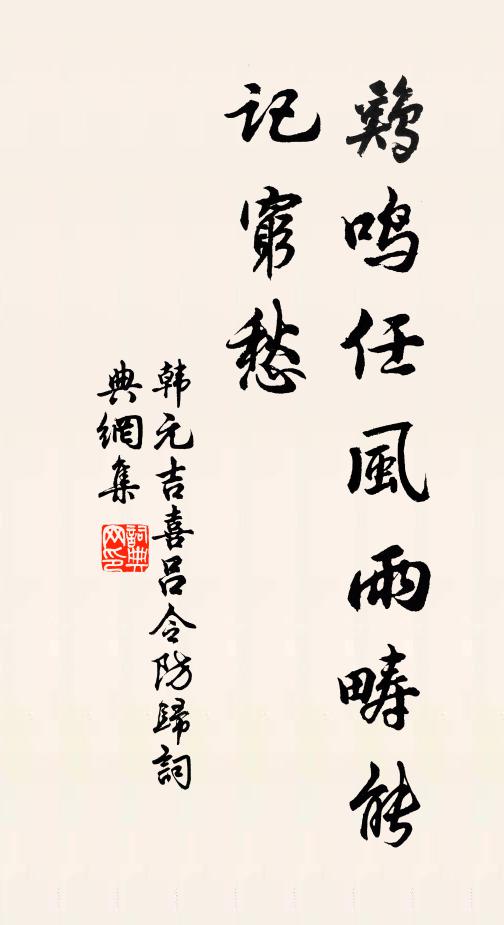 鷄鳴任風雨疇能
記窮愁
韩元吉喜吕令防歸詞
典網集
詞典
网印